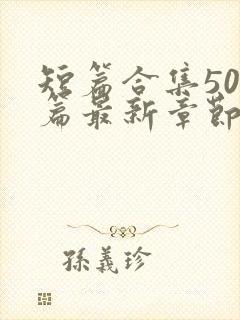 短篇合集50
篇最新章節
孫義珍